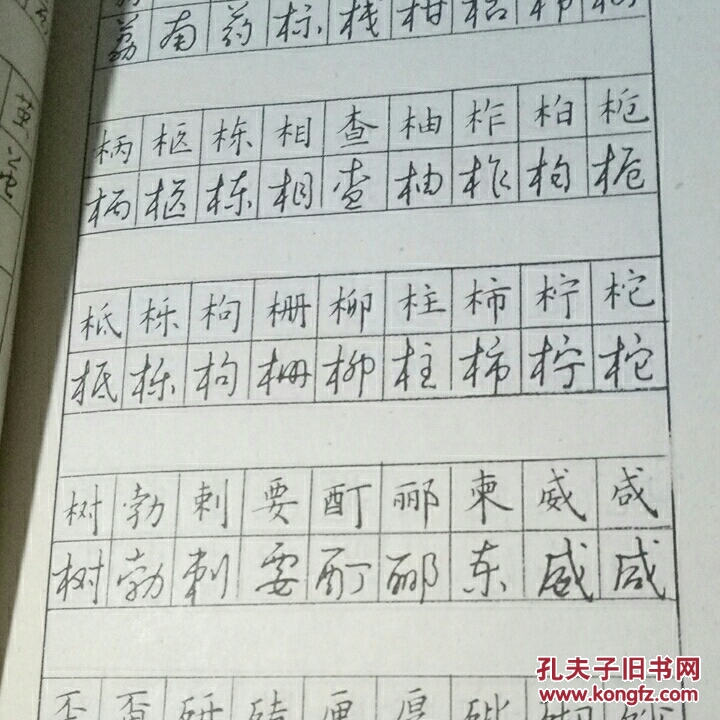 荔南药标栈柑枯
柄柩栋相查柚柞柏栀
柄柩栋相查柚柞柏栀
柢栎枸栅柳柱柿柠柁
柢栎枸栅柳柱柿柠柁
树勃剌要酊郦柬威咸
树勃剌要酊郦柬威咸
研砖厘厚砒
孔夫子旧书网
www.kongfz.com